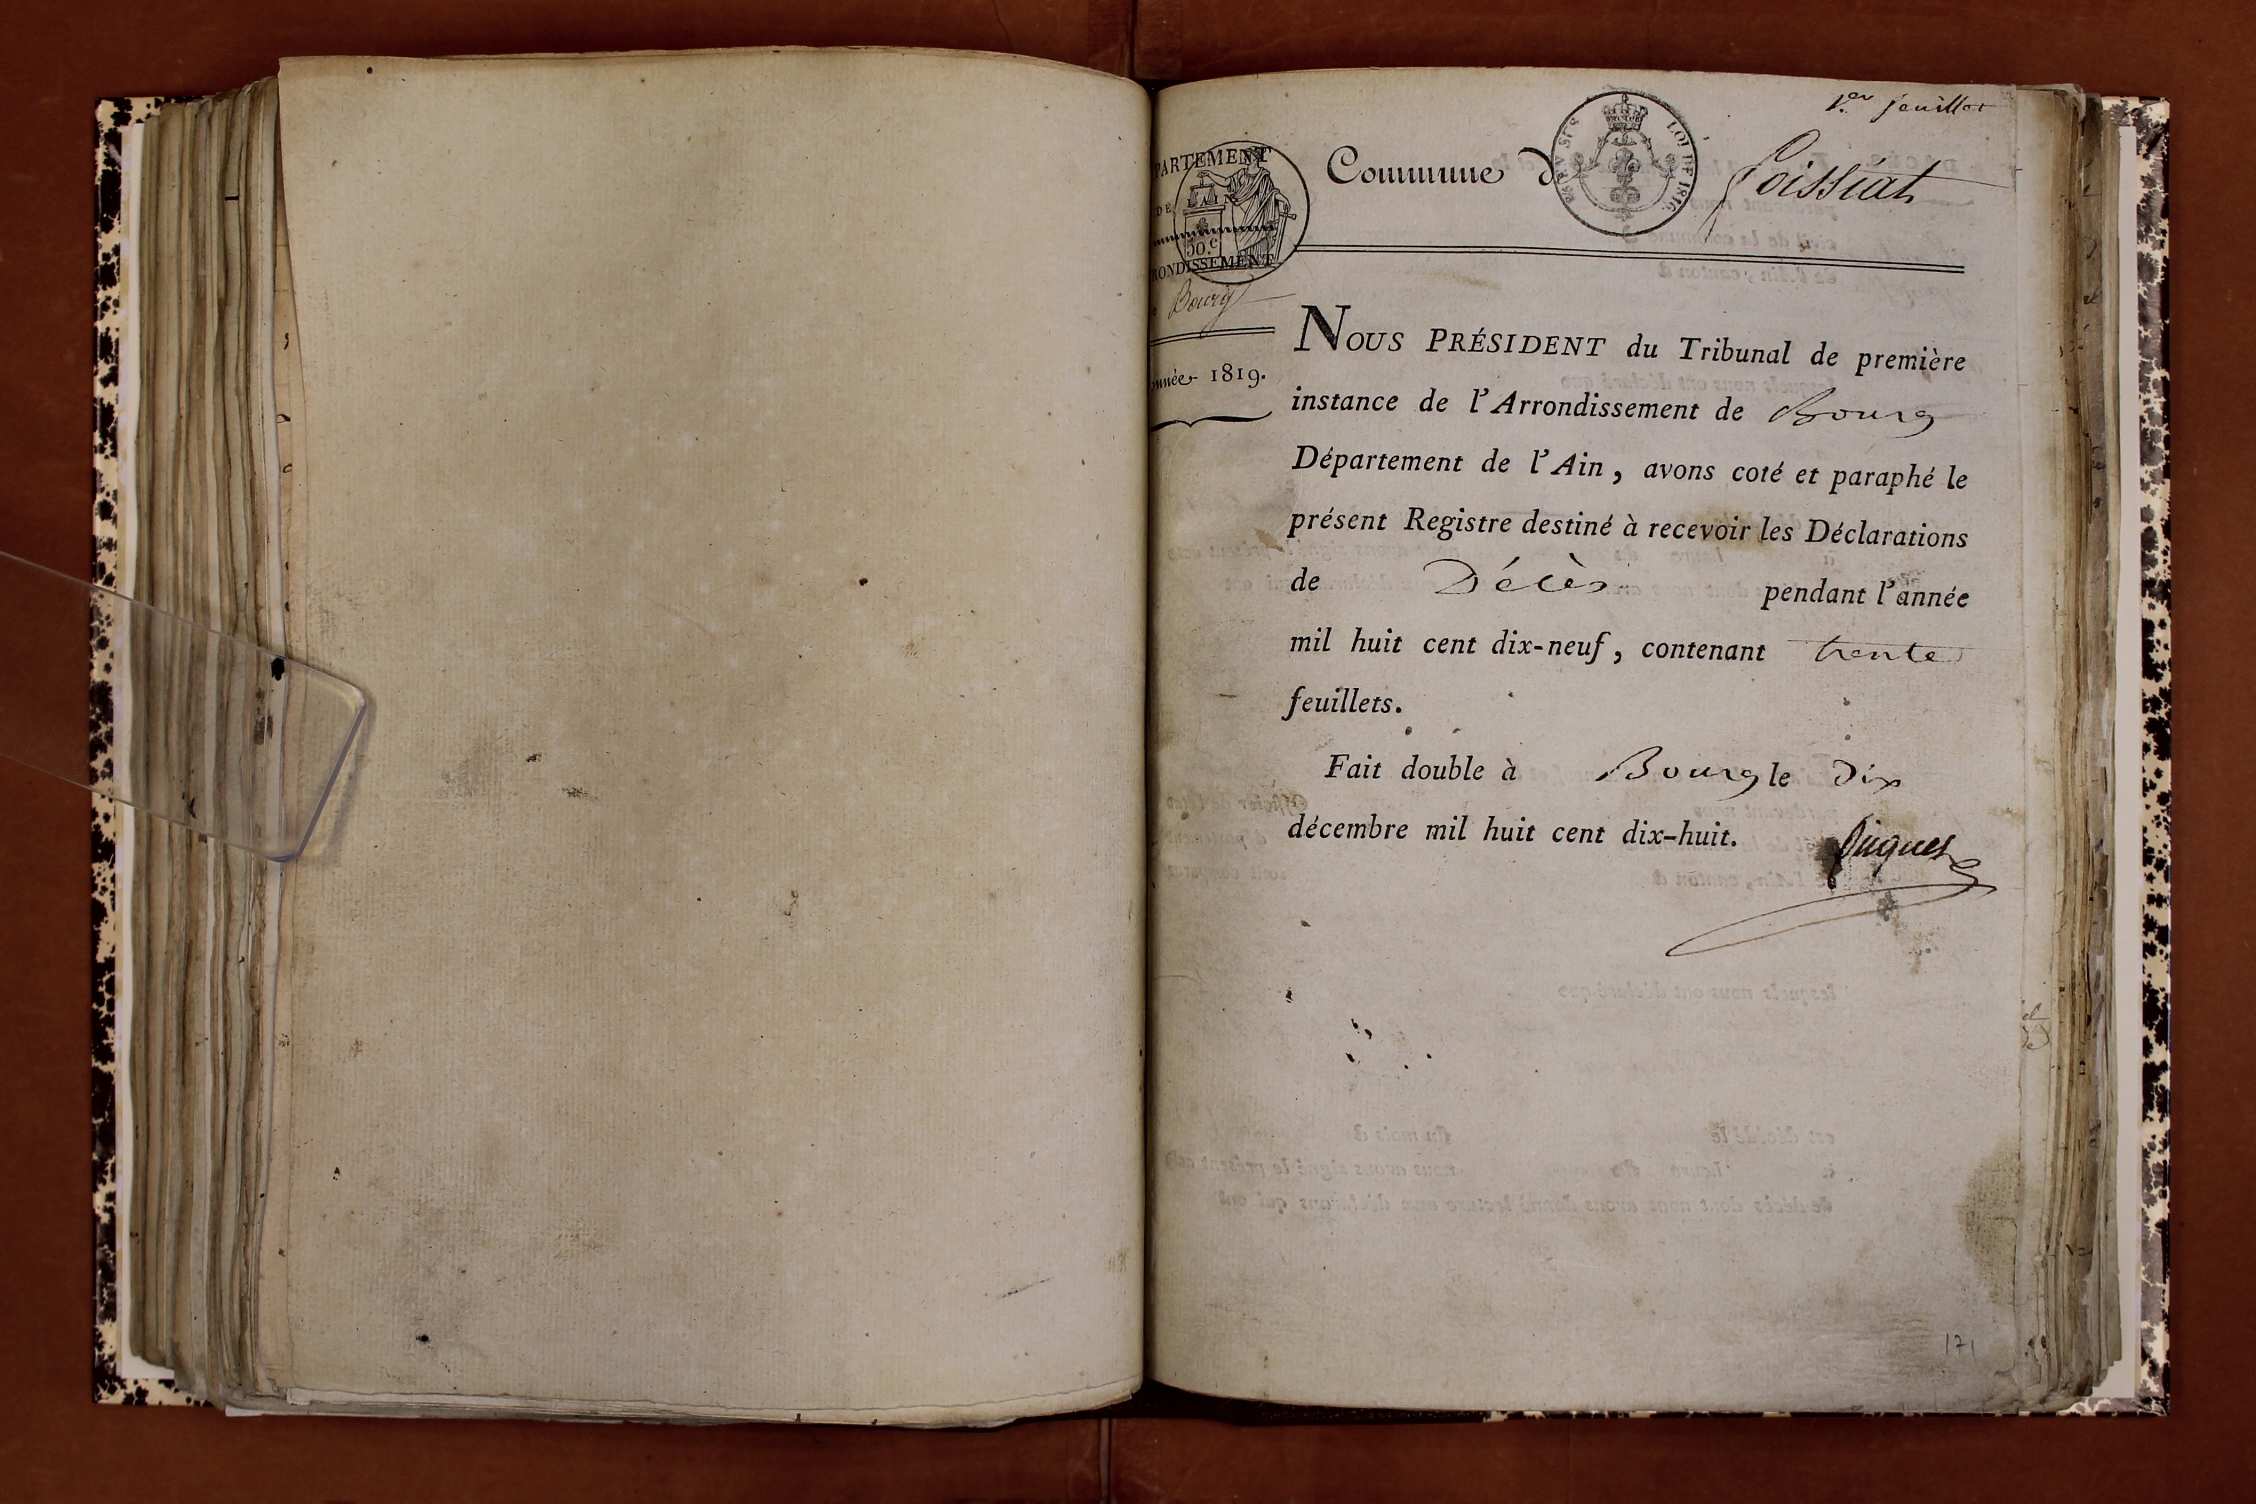 1.er feuillet
Commune de Foissiat
EN SUS LOI DE 1816.
PARTEMENT
DE L'AIN
50.c
RONDISSEMENT
Bourg
année 1819.
NOUS PRÉSIDENT du Tribunal de première
instance de l'Arrondissement de Bourg
Département de l'Ain, avons coté et paraphé le
présent Registre destiné à recevoir les Déclarations
de Décès pendant l'année
mil huit cent dix-neuf, contenant trente
feuillets.
Fait double à Bourg le dix
décembre mil huit cent dix-huit.
171